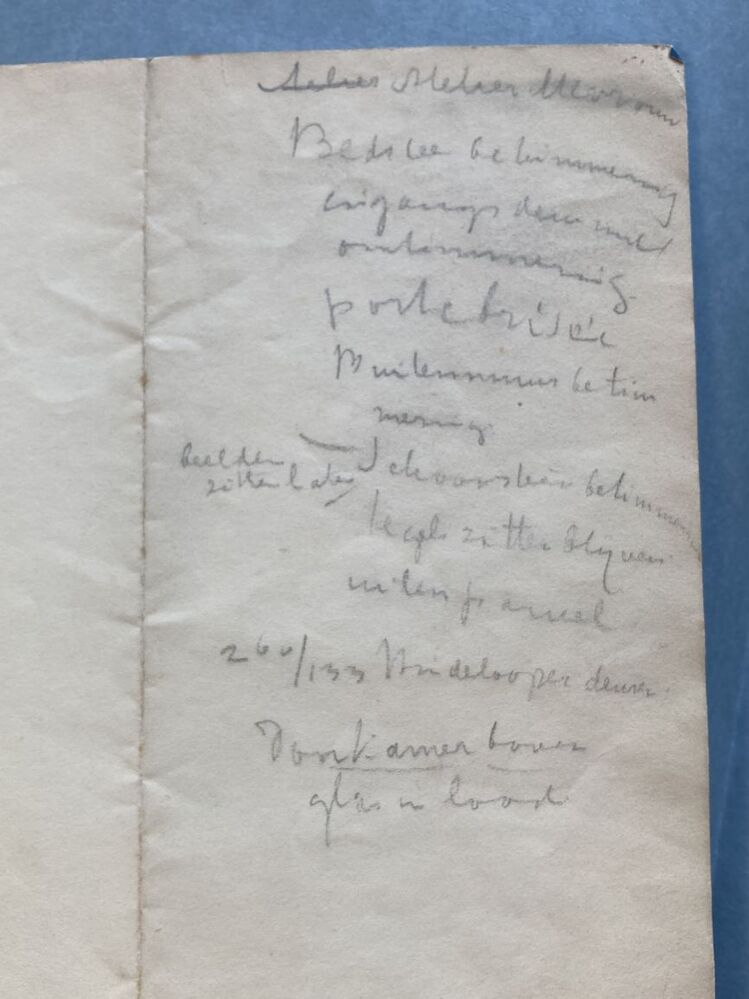 Atelier
Bedstee betimmering
ingangs deur met
omtimmering
porte brisée
Buitenmuur betim
mering
beelden
zitten laten
Schoorsteen betimmering
tegels zitten blijven
uiten paneel
260/133 Hindelooper deuren
Donk amer boven
glas in lood